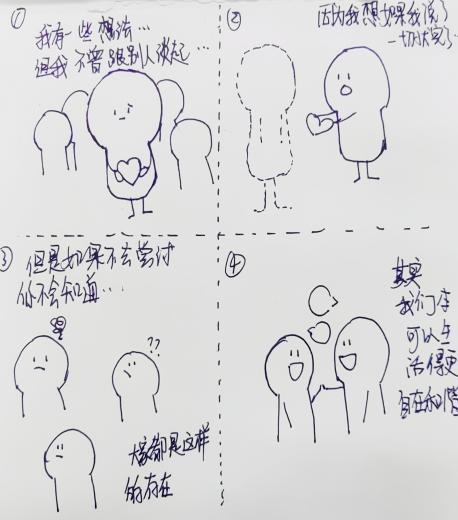 ①
我有一些想法…
但我不曾跟别人谈起…
②
因为我想如果我说了
一切就完了…
③
但是如果不去尝试
你不会知道…
??
大家都是这样
的存在
④
其实
我们
可以
活得更
自在和